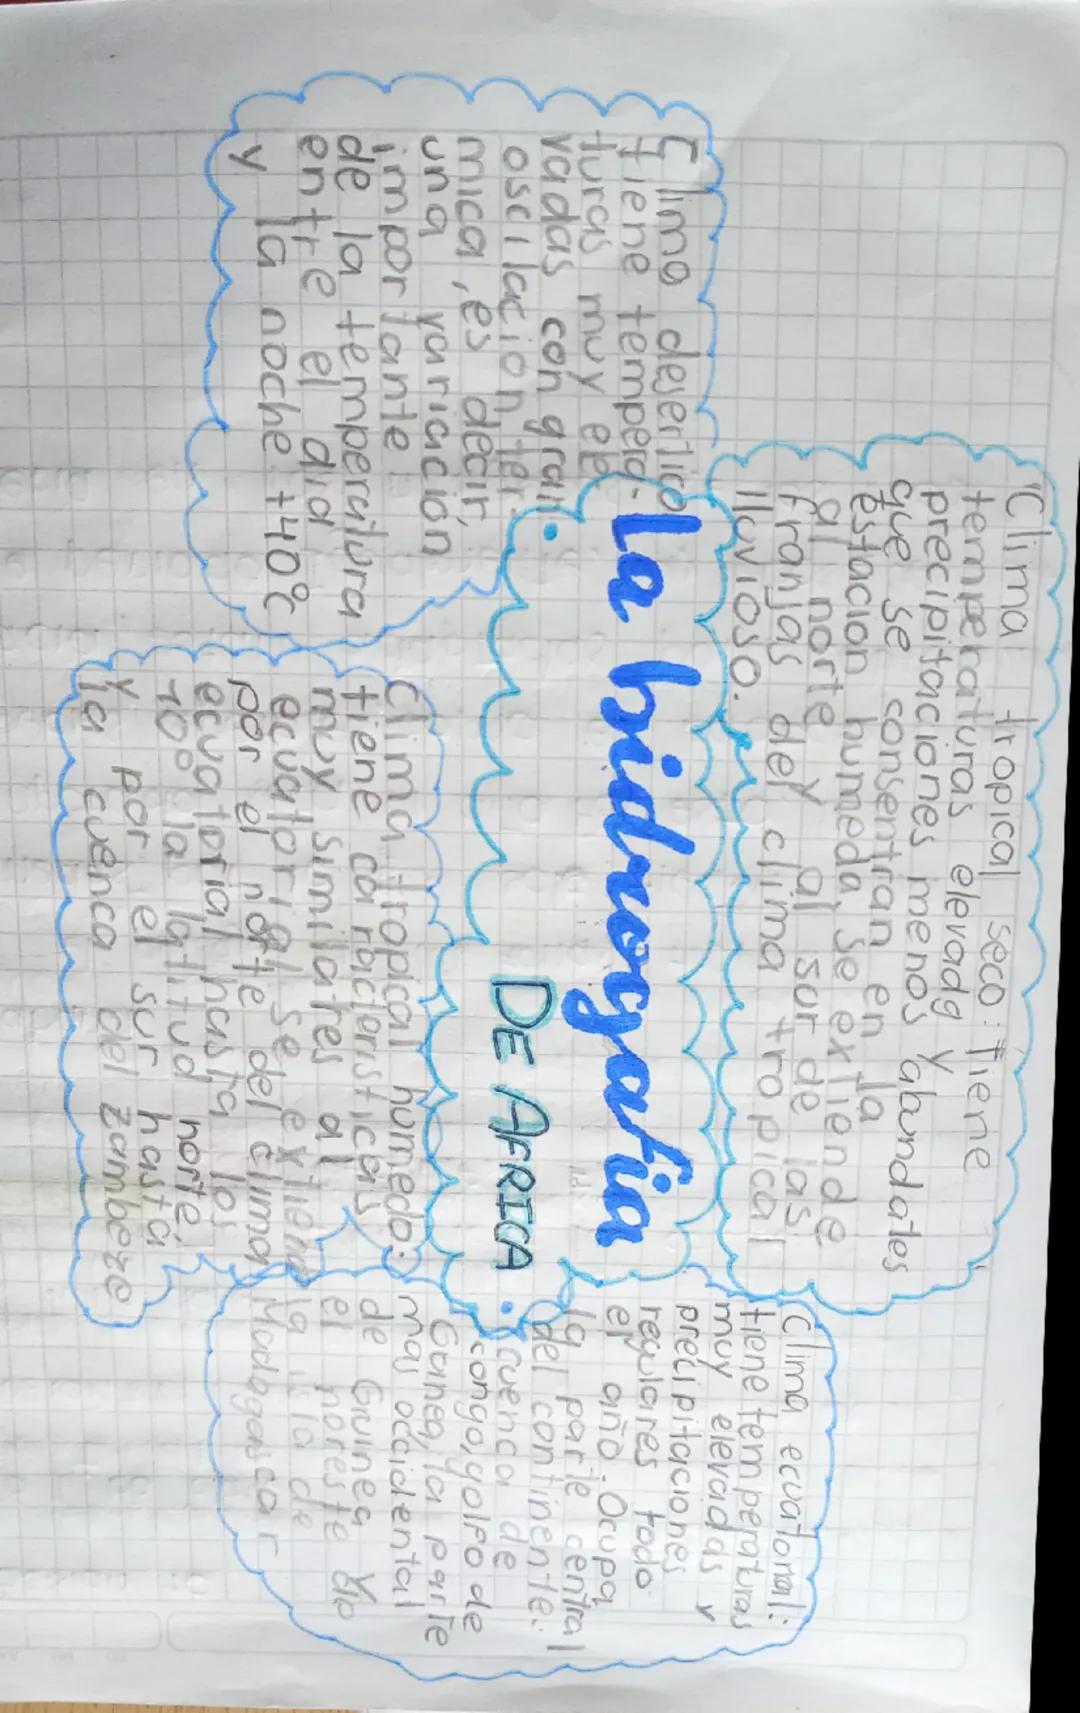 La hidrografia
DE AFRICA
Clima tropical seco: Tiene
temperaturas elevadas y
precipitaciones menos abundates
que se consentran en la
estacion humeda, se extiende
al norte y al sur de las
franjas del clima tropical
lluvioso.
Clima desertico
tiene tempera-
turas muy ele
vadas con gran
oscilacion tér-
mica, es decir,
una variacion
importante
de la temperatura
entre el dia
y la noche +40°C
Clima tropical humedo:
tiene caracteristicas
muy similares al
ecuatorial se extiende
por el norte del clima
ecuatorial hasta los
10° la latitud norte,
y por el sur hasta
la cuenca del zambeze
Clima ecuatorial:
tiene temperaturas
muy elevadas y
precipitaciones
regulares todo
el año. Ocupa
la parte central
del continente:
cuenca de
congo, golfo de
Guinea, la parte
mas occidental
de Guinea y
el noreste de
la isla de
Madagascar